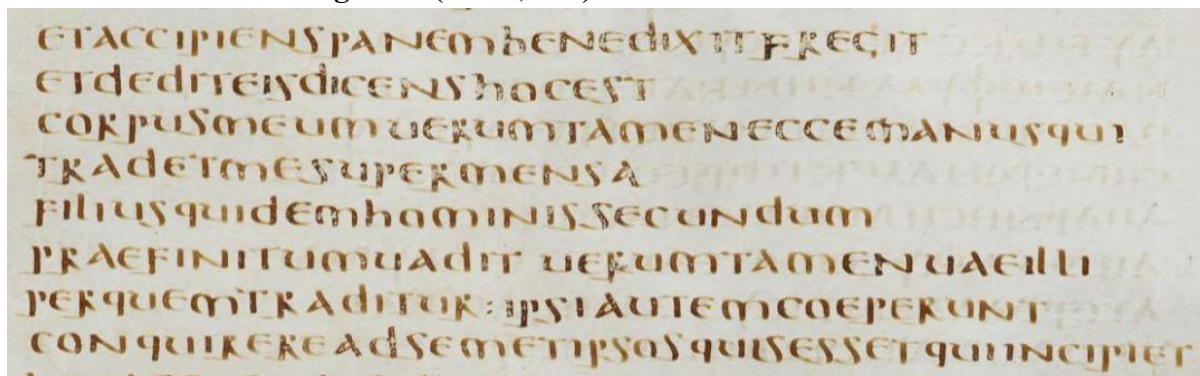 ETACCIPIENSPANEMBENEDIXITFREGIT
ETDEDITEISDICENSHOCEST
CORPUSMEUMUERUMTAMENECCEMANUSQUI
TRADETMESUPERMENSA
FILIUSQUIDEMHOMINISSECUNDUM
PRAEFINITUMUADIT UERUMTAMENUAEILLI
PERQUEMTRADITUR:IPSIAUTEMCOEPERUNT
CONQUIREREADSEMETIPSOSQUISESSETQUIINCIPIET